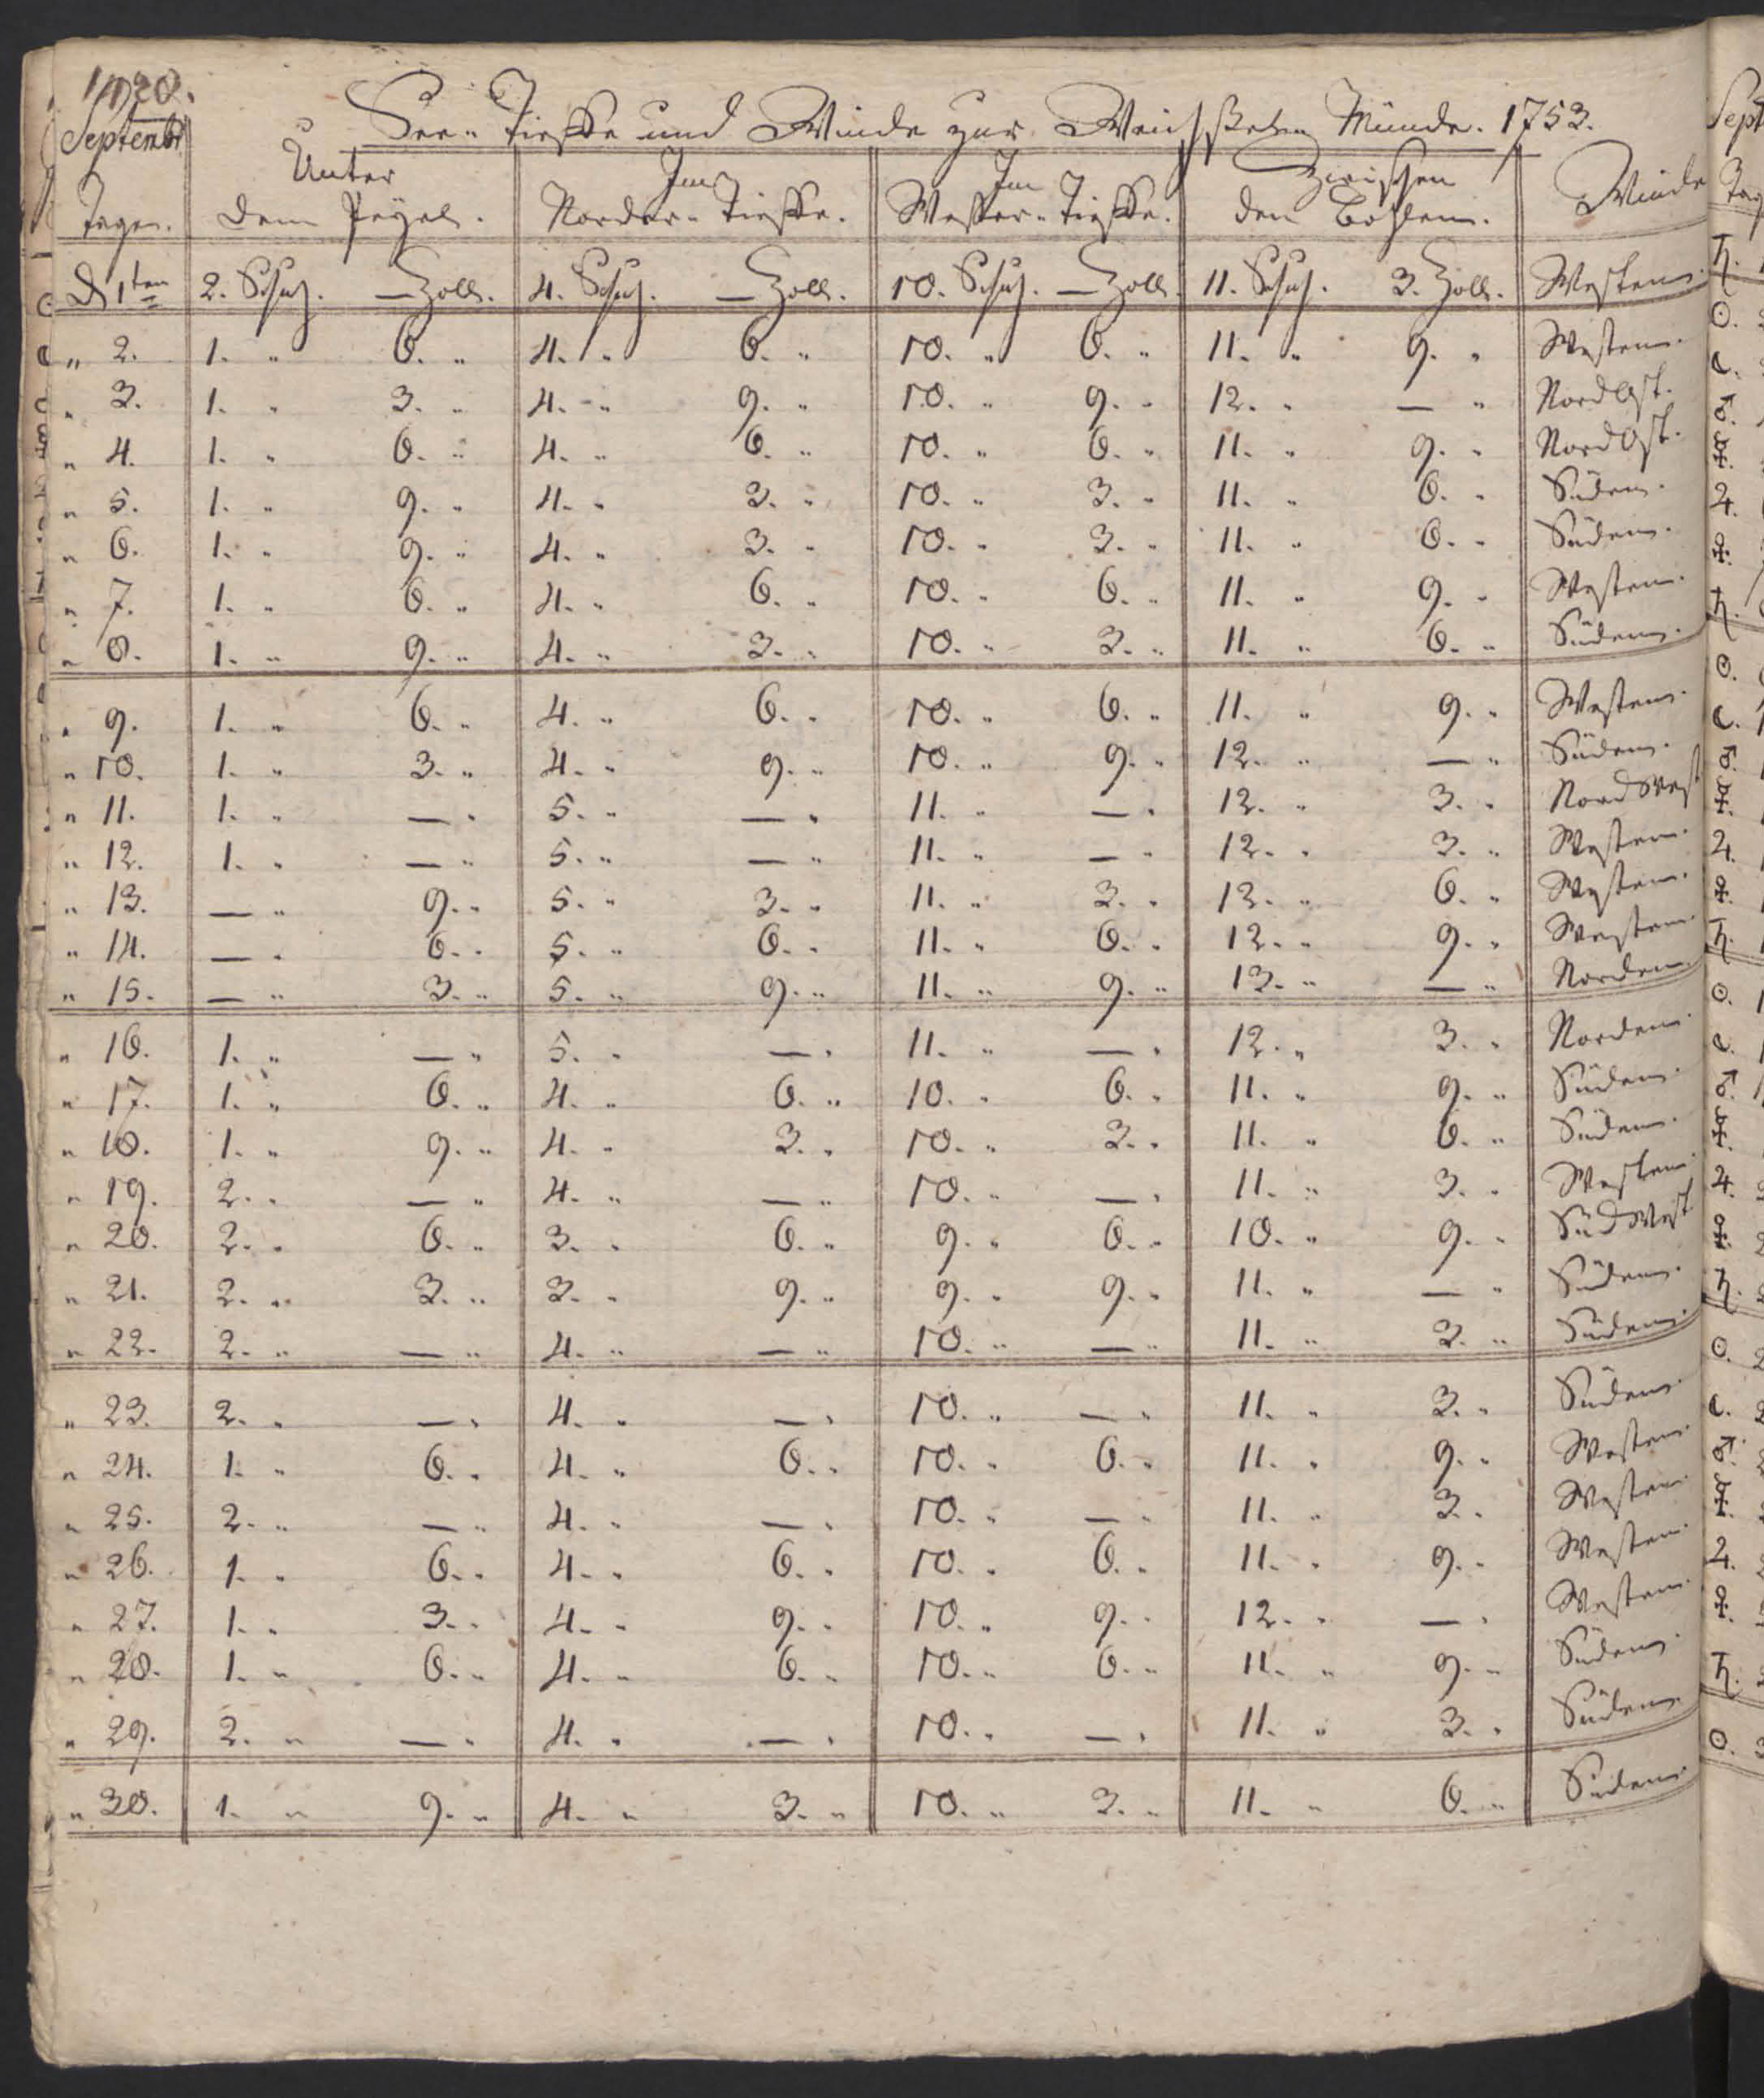 Septembr
See-Tieffe und Winde zur Weichselmünde. 1753.
Tagen. Unter dem Peÿel. Im Norder-Tieffe. Im Wester-Tieffe. Zwischen den Bohlen. Winde
D 1ten 2. Schuh. — Zoll. 4. Schuh. — Zoll. 10. Schuh. — Zoll. 11. Schuh. 3. Zoll. Westen.
" 2. 1. " 6. " 4. " 6. " 10. " 6. " 11. " 9. " Westen.
" 3. 1. " 3. " 4. " 9. " 10. " 9. " 12. " — " NordOst.
" 4. 1. " 6. " 4. " 6. " 10. " 6. " 11. " 9. " NordOst.
" 5. 1. " 9. " 4. " 3. " 10. " 3. " 11. " 6. " Süden.
" 6. 1. " 9. " 4. " 3. " 10. " 3. " 11. " 6. " Süden.
" 7. 1. " 6. " 4. " 6. " 10. " 6. " 11. " 9. " Westen.
" 8. 1. " 9. " 4. " 3. " 10. " 3. " 11. " 6. " Süden.
" 9. 1. " 6. " 4. " 6. " 10. " 6. " 11. " 9. " Westen.
" 10. 1. " 3. " 4. " 9. " 10. " 9. " 12. " — " Süden.
" 11. 1. " — " 5. " — " 11. " — " 12. " 3. " NordWest
" 12. 1. " — " 5. " — " 11. " — " 12. " 3. " Westen.
" 13. — " 9. " 5. " 3. " 11. " 3. " 12. " 6. " Westen.
" 14. — " 6. " 5. " 6. " 11. " 6. " 12. " 9. " Westen
" 15. — " 3. " 5. " 9. " 11. " 9. " 13. " — " Norden.
" 16. 1. " — " 5. " — " 11. " — " 12. " 3. " Norden.
" 17. 1. " 6. " 4. " 6. " 10. " 6. " 11. " 9. " Süden.
" 18. 1. " 9. " 4. " 3. " 10. " 3. " 11. " 6. " Süden.
" 19. 2. " — " 4. " — " 10. " — " 11. " 3. " Westen.
" 20. 2. " 6. " 3. " 6. " 9. " 6. " 10. " 9. " SüdWest
" 21. 2. " 3. " 3. " 9. " 9. " 9. " 11. " — " Süden.
" 22. 2. " — " 4. " — " 10. " — " 11. " 3. " Süden.
" 23. 2. " — " 4. " — " 10. " — " 11. " 3. " Süden.
" 24. 1. " 6. " 4. " 6. " 10. " 6. " 11. " 9. " Westen.
" 25. 2. " — " 4. " — " 10. " — " 11. " 3. " Westen.
" 26. 1. " 6. " 4. " 6. " 10. " 6. " 11. " 9. " Westen.
" 27. 1. " 3. " 4. " 9. " 10. " 9. " 12. " — " Westen.
" 28. 1. " 6. " 4. " 6. " 10. " 6. " 11. " 9. " Süden.
" 29. 2. " — " 4. " — " 10. " — " 11. " 3. " Süden.
" 30. 1. " 9. " 4. " 3. " 10. " 3. " 11. " 6. " Süden.